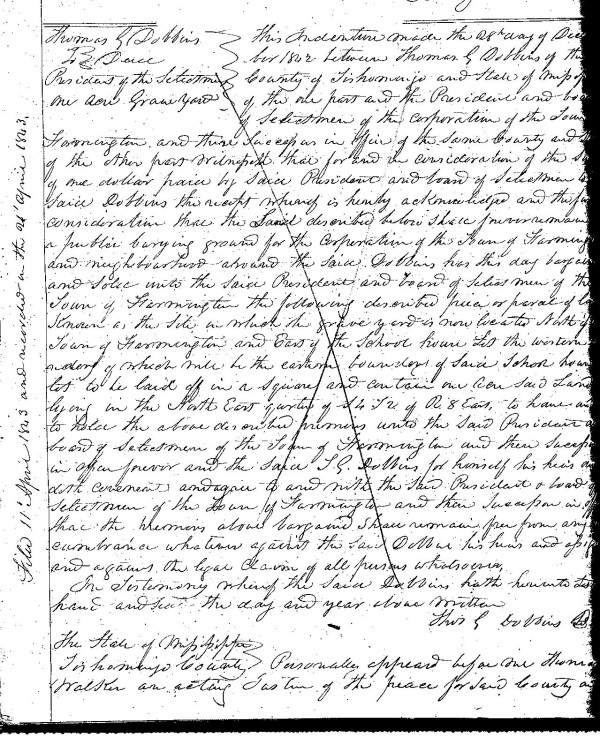 Thomas G Dobbins
To } Deed
President of the Selectmen
one acre Graveyard
This Indenture made the 28th day of Dec
ber 1842 between Thomas G Dobbins of the
County of Tishomingo and State of Missi
of the one part and the President and boa
of Selectmen of the corporation of the Town
Farmington and their Successors in office of the same County and St
of the other part Witnesseth that for and in consideration of the s
of one dollar paid by Said President and board of Selectmen to
Said Dobbins the receipt whereof is hereby acknowledged and the fur
consideration that the Land described below Shall forever remain
a public burying ground for the Corporation of the Town of Farming
and neighbourhood around the Said Dobbins has this day bargain
and Sold unto the Said President and board of Selectmen of the
Town of Farmington the following described piece or parcel of la
Known as the Site in which the grave yard is now located North of
Town of Farmington and East of the School house Lot the western
ndary of which will be the eastern boundary of Said School house
lot to be laid off in a Square and contain one acre Said Land
lying in the North East quarter of S 4 T 2 of R 8 East, to have an
to hold the above described premises unto the Said President a
board of Selectmen of the Town of Farmington and their Successo
in office forever and the Said T. G. Dobbins for himself his heirs an
doth covenant and agree to and with the Said President & board of
Selectmen of the Town of Farmington and their Successors in off
that the premises above bargained Shall remain free from any
cumbrance whatever against the Said Dobbins his heirs and assig
and against the legal Claim of all persons whatsoever,
In Testimony whereof the Said Dobbins hath hereunto Set
hand and seal the day and year above written
Thos G Dobbins
The State of Mississippi
Tishomingo County } Personally appeared before me Thomas
Walker an acting Justice of the peace for Said County a
Filed 11th April 1843 and recorded on the 24th April 1843.